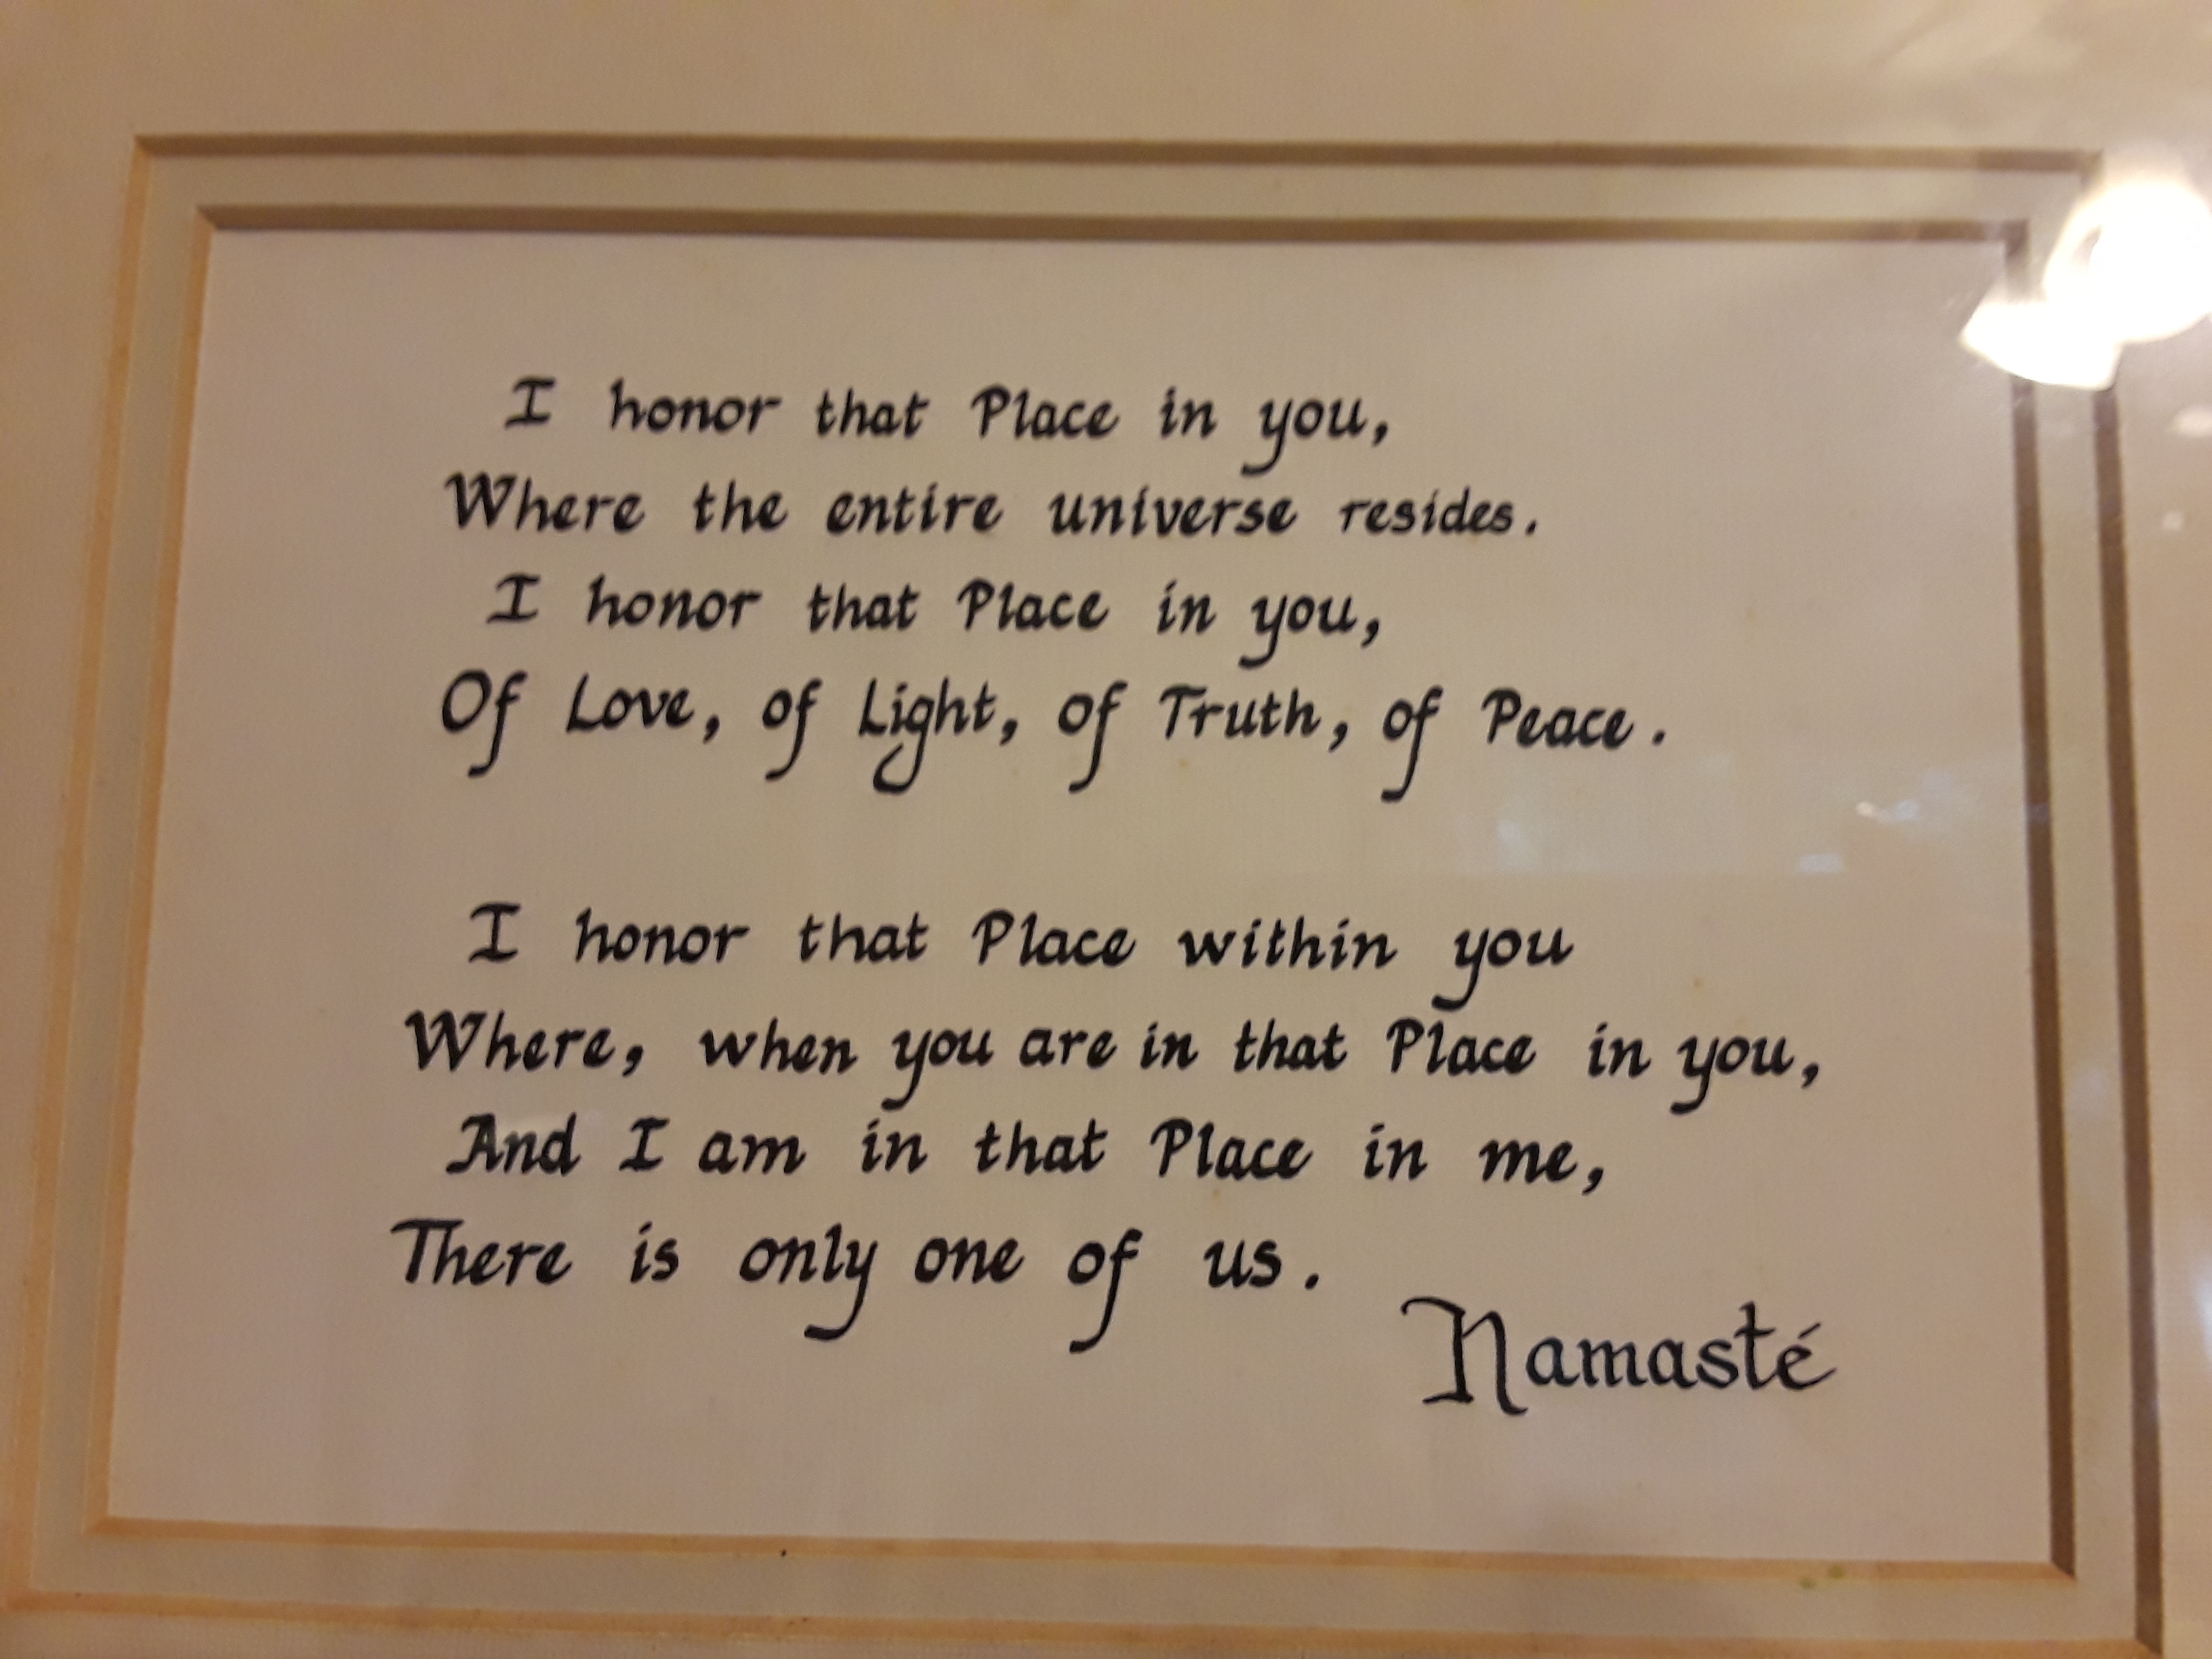 I honor that Place in you,
Where the entire universe resides.
I honor that Place in you,
Of Love, of Light, of Truth, of Peace.
I honor that Place within you
Where, when you are in that Place in you,
And I am in that Place in me,
There is only one of us.
Namasté